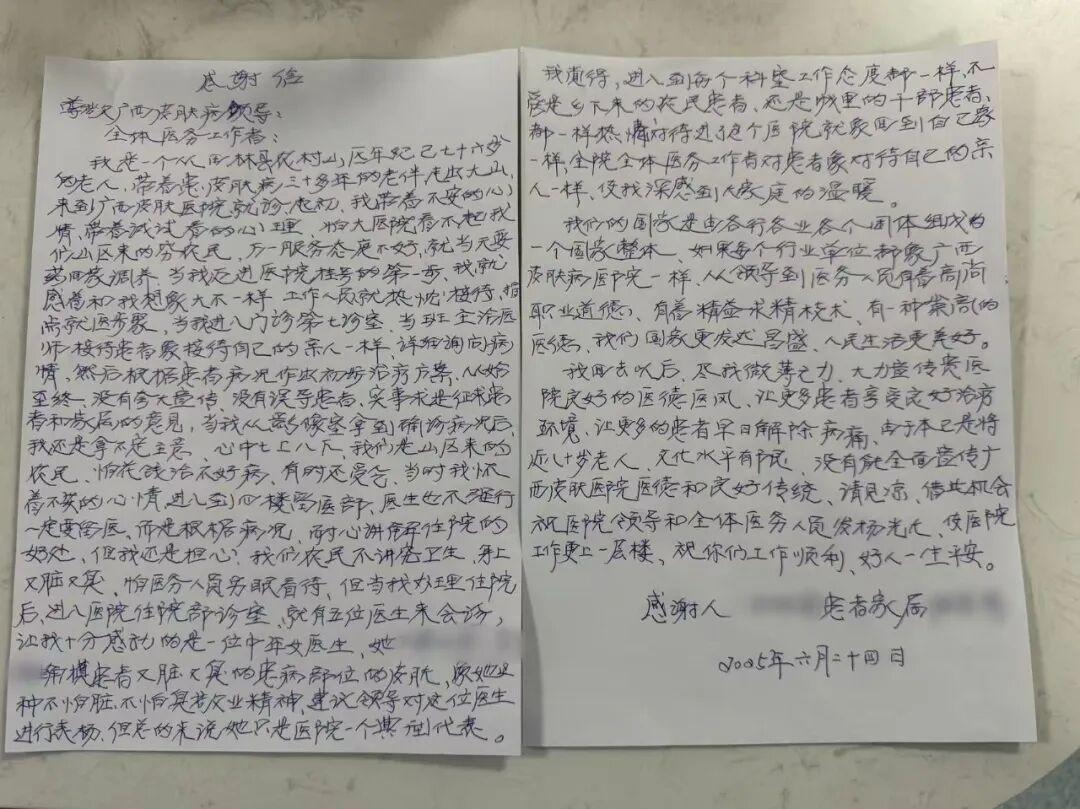 感谢信
尊敬广西皮肤病领导：
全体医务工作者：
我是一个从田林县农村山区年纪已七十六岁
的老人，带着患皮肤病三十多年的老伴走出大山，
来到广西皮肤医院就诊起初，我带着不安的心
情，带着试试看的心理，怕大医院看不起我
们山区来的穷农民，万一服务态度不好，就当天要
药回家调养，当我走进医院挂号的第一步，我就
感觉和我想象大不一样，工作人员就热忱接待，指
点就医步聚，当我进入门诊第七诊室，当班主治医
师接待患者象接待自己的亲人一样，详细询问病
情，然后根据患者病况作出初步治疗方案，从始
至终，没有夸大宣传，没有误导患者，实事求是征求患
者和家属的意见，当我从影像室拿到确诊病况后，
我还是拿不定主意，心中七上八下，我们是山区来的
农民，怕花钱治不好病，有时还受气，当时我怀
着不安的心情，进入到心楼留医部，医生也不强行
一定要留医，而是根据病况，耐心讲解住院的
好处，但我还是担心，我们农民不讲究卫生，身上
又脏又臭，怕医务人员另眼看待，但当我办理住院
后，进入医院住院部诊室，就有五位医生来会诊，
让我十分感动的是一位中年女医生，她
角模患者又脏又臭的患病部位的皮肤，象她这
种不怕脏，不怕臭敬业精神，建议领导对这位医生
进行表扬，但总的来说她只是医院一个典型代表。
我觉得，进入到每个科室工作态度都一样，不
管是乡下来的农民患者，还是城里的干部患者，
都一样热情对待进这个医院就象回到自己家
一样，全院全体医务工作者对患者象对待自己的亲
人一样，使我深感到大家庭的温暖。
我们的国家是由各行各业各个团体组成的
一个国家整体，如果每个行业单位都象广西
皮肤病医院一样，从领导到医务人员有着高尚
职业道德，有着精益求精技术，有一种崇高的
医德，我们国家更发达昌盛，人民生活更美好。
我回去以后，尽我微薄之力，大力宣传贵医
院良好的医德医风，让更多患者享受良好治疗
环境，让更多的患者早日解除病痛，由于本已是将
近八十岁老人，文化水平有限，没有能全面宣传广
西皮肤医院医德和良好传统，请见凉，借此机会
祝医院领导和全体医务人员发扬光大，使医院
工作更上一层楼，祝你们工作顺利，好人一生平安。
感谢人 患者家属
2025年六月二十四日